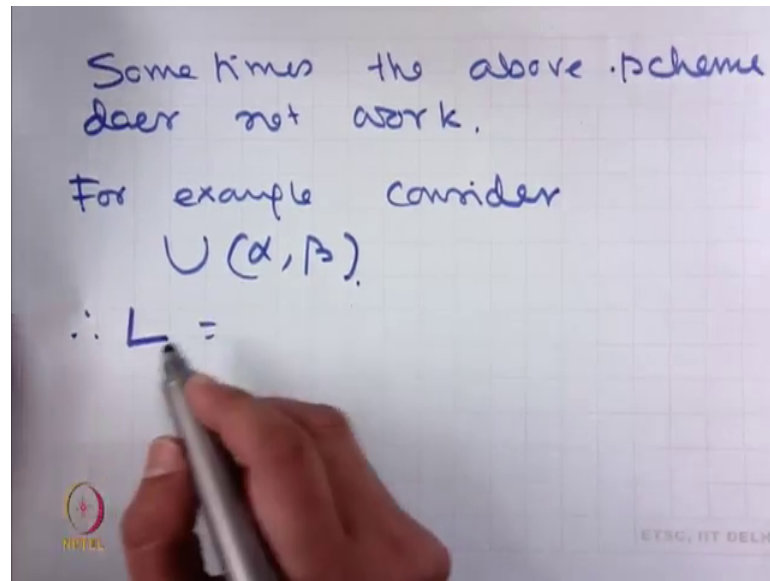 Some times the above scheme
does not work.
For example consider
U (α, β).
∴ L =
NPTEL
ETSC, IIT DELH